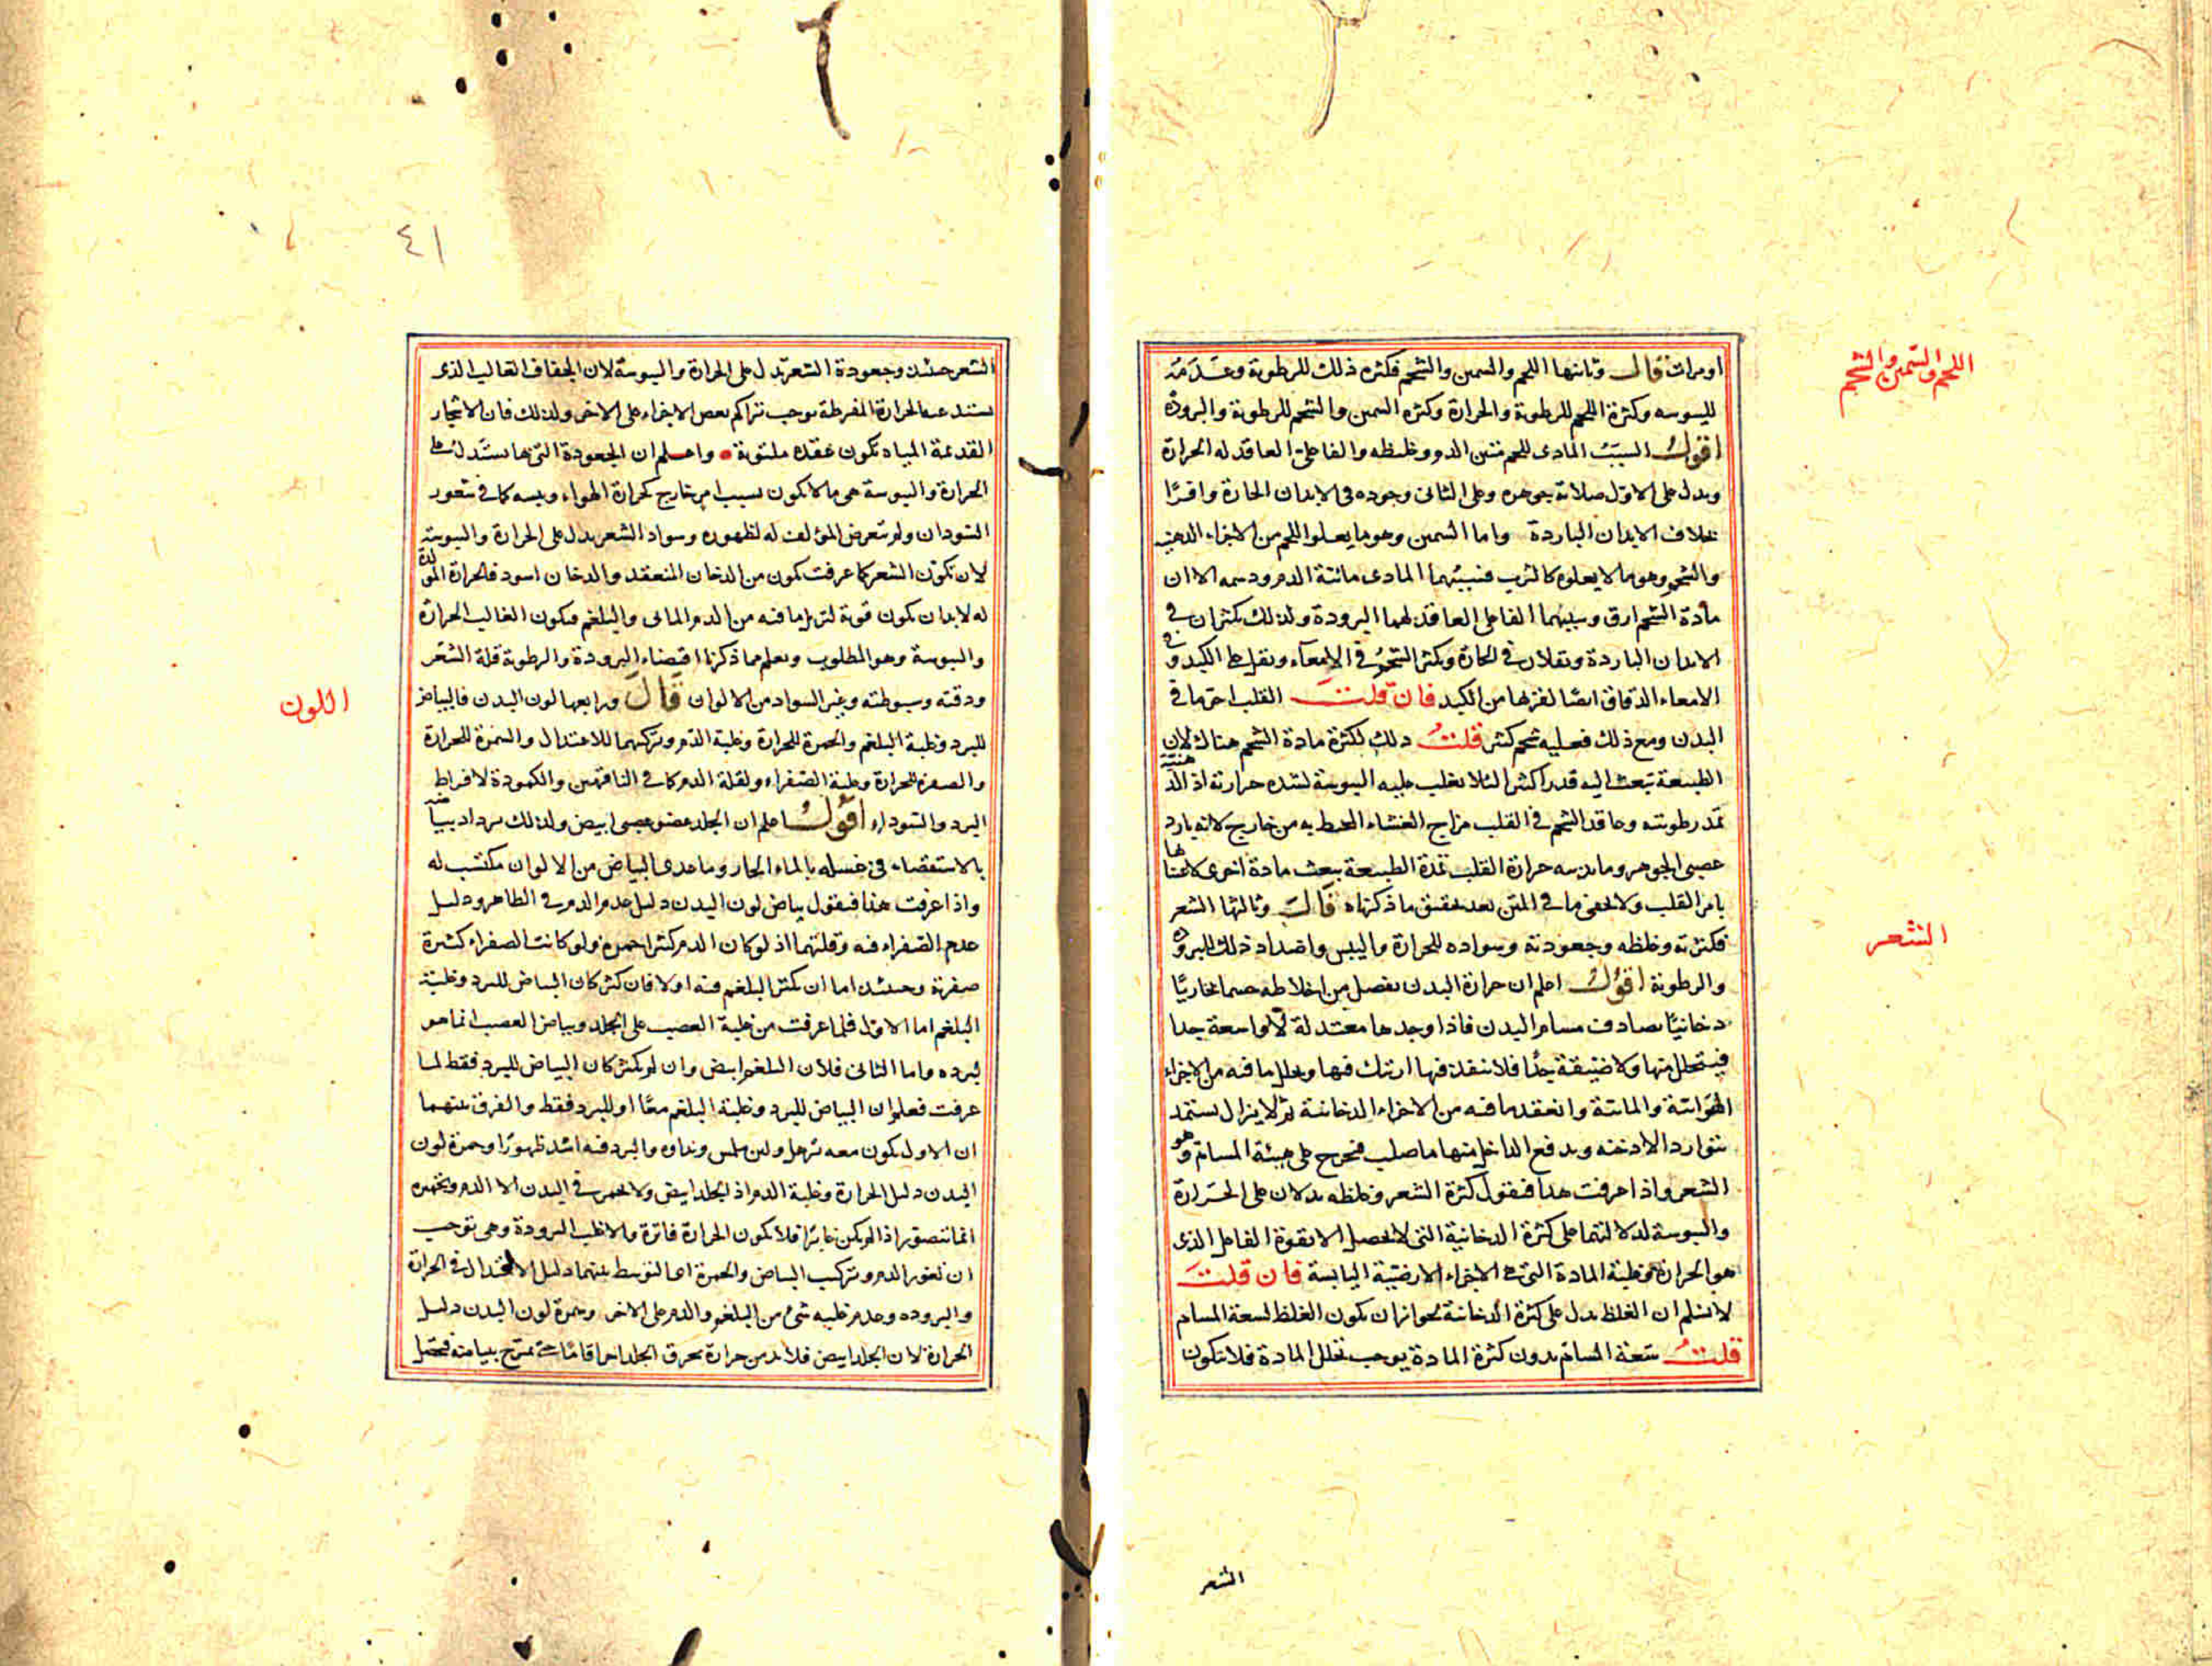 اللحم والسمين والشحم
او مرات قال وثانيها اللحم والسمين والشحم فكثرة ذلك للرطوبة وعدمه
لليبوسه وكثرة اللحم للرطوبة والحرارة وكثرة السمين والشحم للرطوبة والبرودة
اقول السبب المادى للحم متين الدم وغليظه والفاعلى العاقد له الحرارة
ويدل على الاول صلابة جوهره وعلى الثانى وجوده فى الابدان الحارة وافرًا
بخلاف الابدان الباردة واما السمين وهو ما يعلو اللحم من الاجزاء الدهنية
والشحم وهو ما لا يعلوه كالثرب فسببهما المادى مائية الدم ودسمه الا ان
مادة الشحم ارق وسببهما الفاعلى العاقد لهما البرودة ولذلك يكثران فى
الابدان الباردة ويقلان فى الحارة ويكثر الشحم فى الامعاء ويقل على الكبد وفى
الامعاء الدقاق ايضًا لقربها من الكبد فان قلت القلب احر ما فى
البدن ومع ذلك فعليه شحم كثير قلت ذلك لكثرة مادة الشحم هناك لان
الطبيعة تبعث اليه قدرا كثيرا لئلا يغلب عليه اليبوسة لشدة حرارته اذ الدهنية
تمد رطوبته وعاقد الشحم فى القلب مزاج الغشاء المحيط به من خارج لانه بارد
عصبى الجوهر وما يذيبه حرارة القلب تمده الطبيعة ببعث مادة اخرى لاعتنائها
بامر القلب ولا يخفى ما فى المتن بعد تحقيق ما ذكرناه قال وثالثها الشعر
الشعر
فكثرته وغلظه وجعودته وسواده للحرارة واليبس واضداد ذلك للبرودة
والرطوبة اقول اعلم ان حرارة البدن تفصل من اخلاطه جسما بخاريًا
دخانيًا يصادف مسام البدن فاذا وجدها معتدلة لا واسعة جدا
فيتحلل منها ولا ضيقة جدًا فلا ينفذ فيها ارتبك فيها وتحلل ما فيه من الاجزاء
الهوائية والمائية وانعقد ما فيه من الاجزاء الدخانية ثم لا يزال يستمد
بتوارد الادخنه ويدفع الداخل منها ما صلب فيخرج على هيئة المسام وهو
الشعر واذا عرفت هذا فنقول كثرة الشعر وغلظه يدلان على الحرارة
واليبوسة لدلالتهما على كثرة الدخانية التى لا تحصل الا بقوة الفاعل الذى
هو الحرارة وغلبة المادة التى هى الاجزاء الارضية اليابسة فان قلت
لا نسلم ان الغلظ يدل على كثرة الدخانية لجواز ان يكون الغلظ لسعة المسام
قلت سعة المسام بدون كثرة المادة يوجب تخلل المادة فلا يتكون
الشعر
٤١
الشعر حينئذ وجعودة الشعر تدل على الحرارة واليبوسة لان الجفاف الغالب الذى
يستدعيه الحرارة المفرطة يوجب تراكم بعض الاجزاء على الاخر ولذلك فان الاشجار
القديمة المياه تكون عقدة ملتوية واعلم ان الجعودة التى بها يستدل على
الحرارة واليبوسة هى ما لا يكون بسبب امر خارج كحرارة الهواء ويبسه كما فى شعور
السودان ولم يتعرض المؤلف له لظهوره وسواد الشعر يدل على الحرارة واليبوسة
لان تكون الشعر كما عرفت يكون من الدخان المنعقد والدخان اسود فالحرارة المولدة
له لا بد ان يكون قوية لتزيل ما فيه من الدم المائى والبلغم فيكون الغالب الحرارة
واليبوسة وهو المطلوب ويعلم مما ذكرنا اقتضاء البرودة والرطوبة قلة الشعر
ودقته وسبوطته وغير السواد من الالوان قال ورابعها لون البدن فالبياض
اللون
للبرد وغلبة البلغم والحمرة للحرارة وغلبة الدم وتركيبهما للاعتدال والسمرة للحرارة
والصفرة للحرارة وغلبة الصفراء ولقلة الدم كما فى الناقهين والكمودة لافراط
البرد والسوداء اقول اعلم ان الجلد عضو عصبى ابيض ولذلك يزداد بياضًا
بالاستقصاء فى غسله بالماء الحار وما عدى البياض من الالوان مكتسب له
واذا عرفت هذا فنقول بياض لون البدن دليل عدم الدم فى الظاهر ودليل
عدم الصفراء فيه وقلتهما اذ لو كان الدم كثيرا حمره ولو كانت الصفراء كثيرة
صفرته وحينئذ اما ان يكثر البلغم فيه او لا فان كثر كان البياض للبرد وغلبة
البلغم اما الاول فلما عرفت من غلبة العصب على الجلد وبياض العصب انما هو
لبرده واما الثانى فلان البلغم ابيض وان لم يكثر كان البياض للبرد فقط لما
عرفت فعلم ان البياض للبرد وغلبة البلغم معًا او للبرد فقط والفرق بينهما
ان الاول يكون معه ترهل ولين ملمس ونداوه والبرد فيه اشد ظهورًا وحمرة لون
البدن دليل الحرارة وغلبة الدم اذ الجلد ابيض ولا يحمر فى البدن الا الدم وتحميره
انما يتصور اذا لم يكن غائرًا فلا يكون الحرارة فاترة والا غلب البرودة وهى توجب
ان تغور الدم وتركيب البياض والحمرة اى التوسط بينهما دليل الاعتدال فى الحرارة
والبروده وعدم غلبه شئ من البلغم والدم على الاخر وسمرة لون البدن دليل
الحرارة لان الجلد ابيض فلا بد من حرارة تحرق الجلد احراقا ما حتى يمتزج ببياضه فيحصل